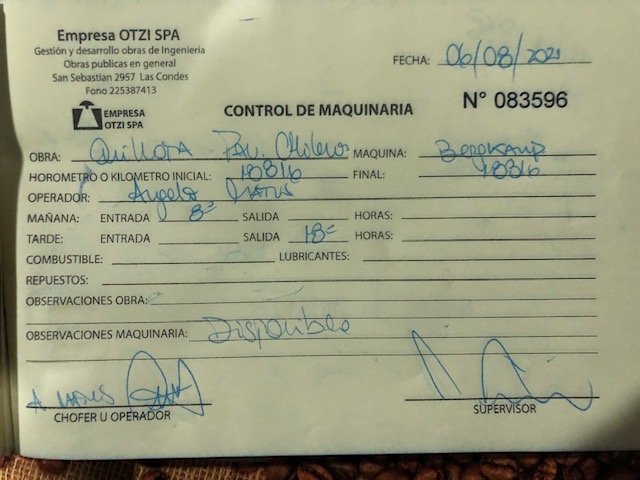 Empresa OTZI SPA
Gestión y desarrollo obras de Ingenieria
Obras publicas en general
San Sebastian 2957 Las Condes
Fono 225387413
FECHA: 06/08/2021
EMPRESA
OTZI SPA
CONTROL DE MAQUINARIA
N° 083596
OBRA: Quillota MAQUINA:
HOROMETRO O KILOMETRO INICIAL: 10816 FINAL:
OPERADOR: Angelo
MAÑANA: ENTRADA 8= SALIDA HORAS:
TARDE: ENTRADA SALIDA 18= HORAS:
COMBUSTIBLE: LUBRICANTES:
REPUESTOS:
OBSERVACIONES OBRA:
OBSERVACIONES MAQUINARIA: Disponible
CHOFER U OPERADOR SUPERVISOR